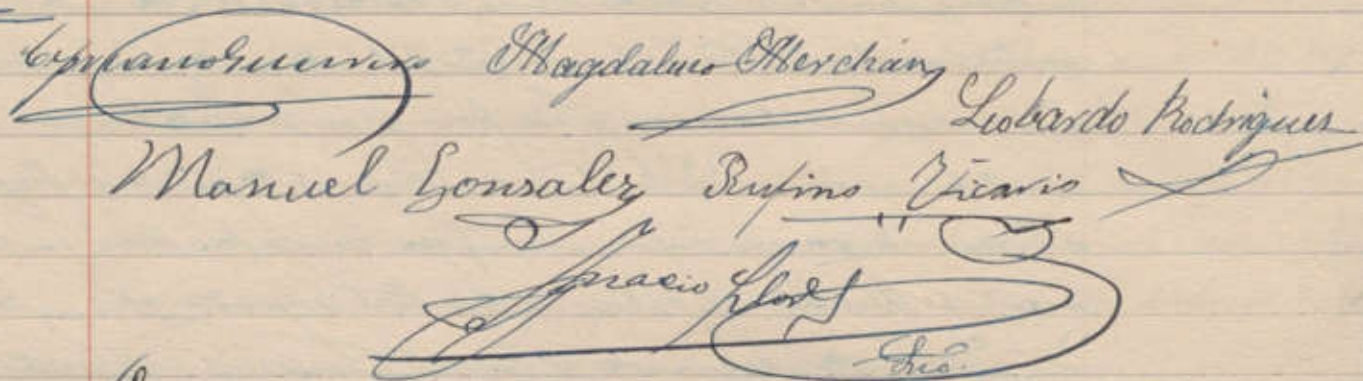 Cipriano Guerrero Magdaleno Merchán
Leobardo Rodrigues
Manuel Gonsalez Rufino Vicario
Ignacio Flores
Srio.